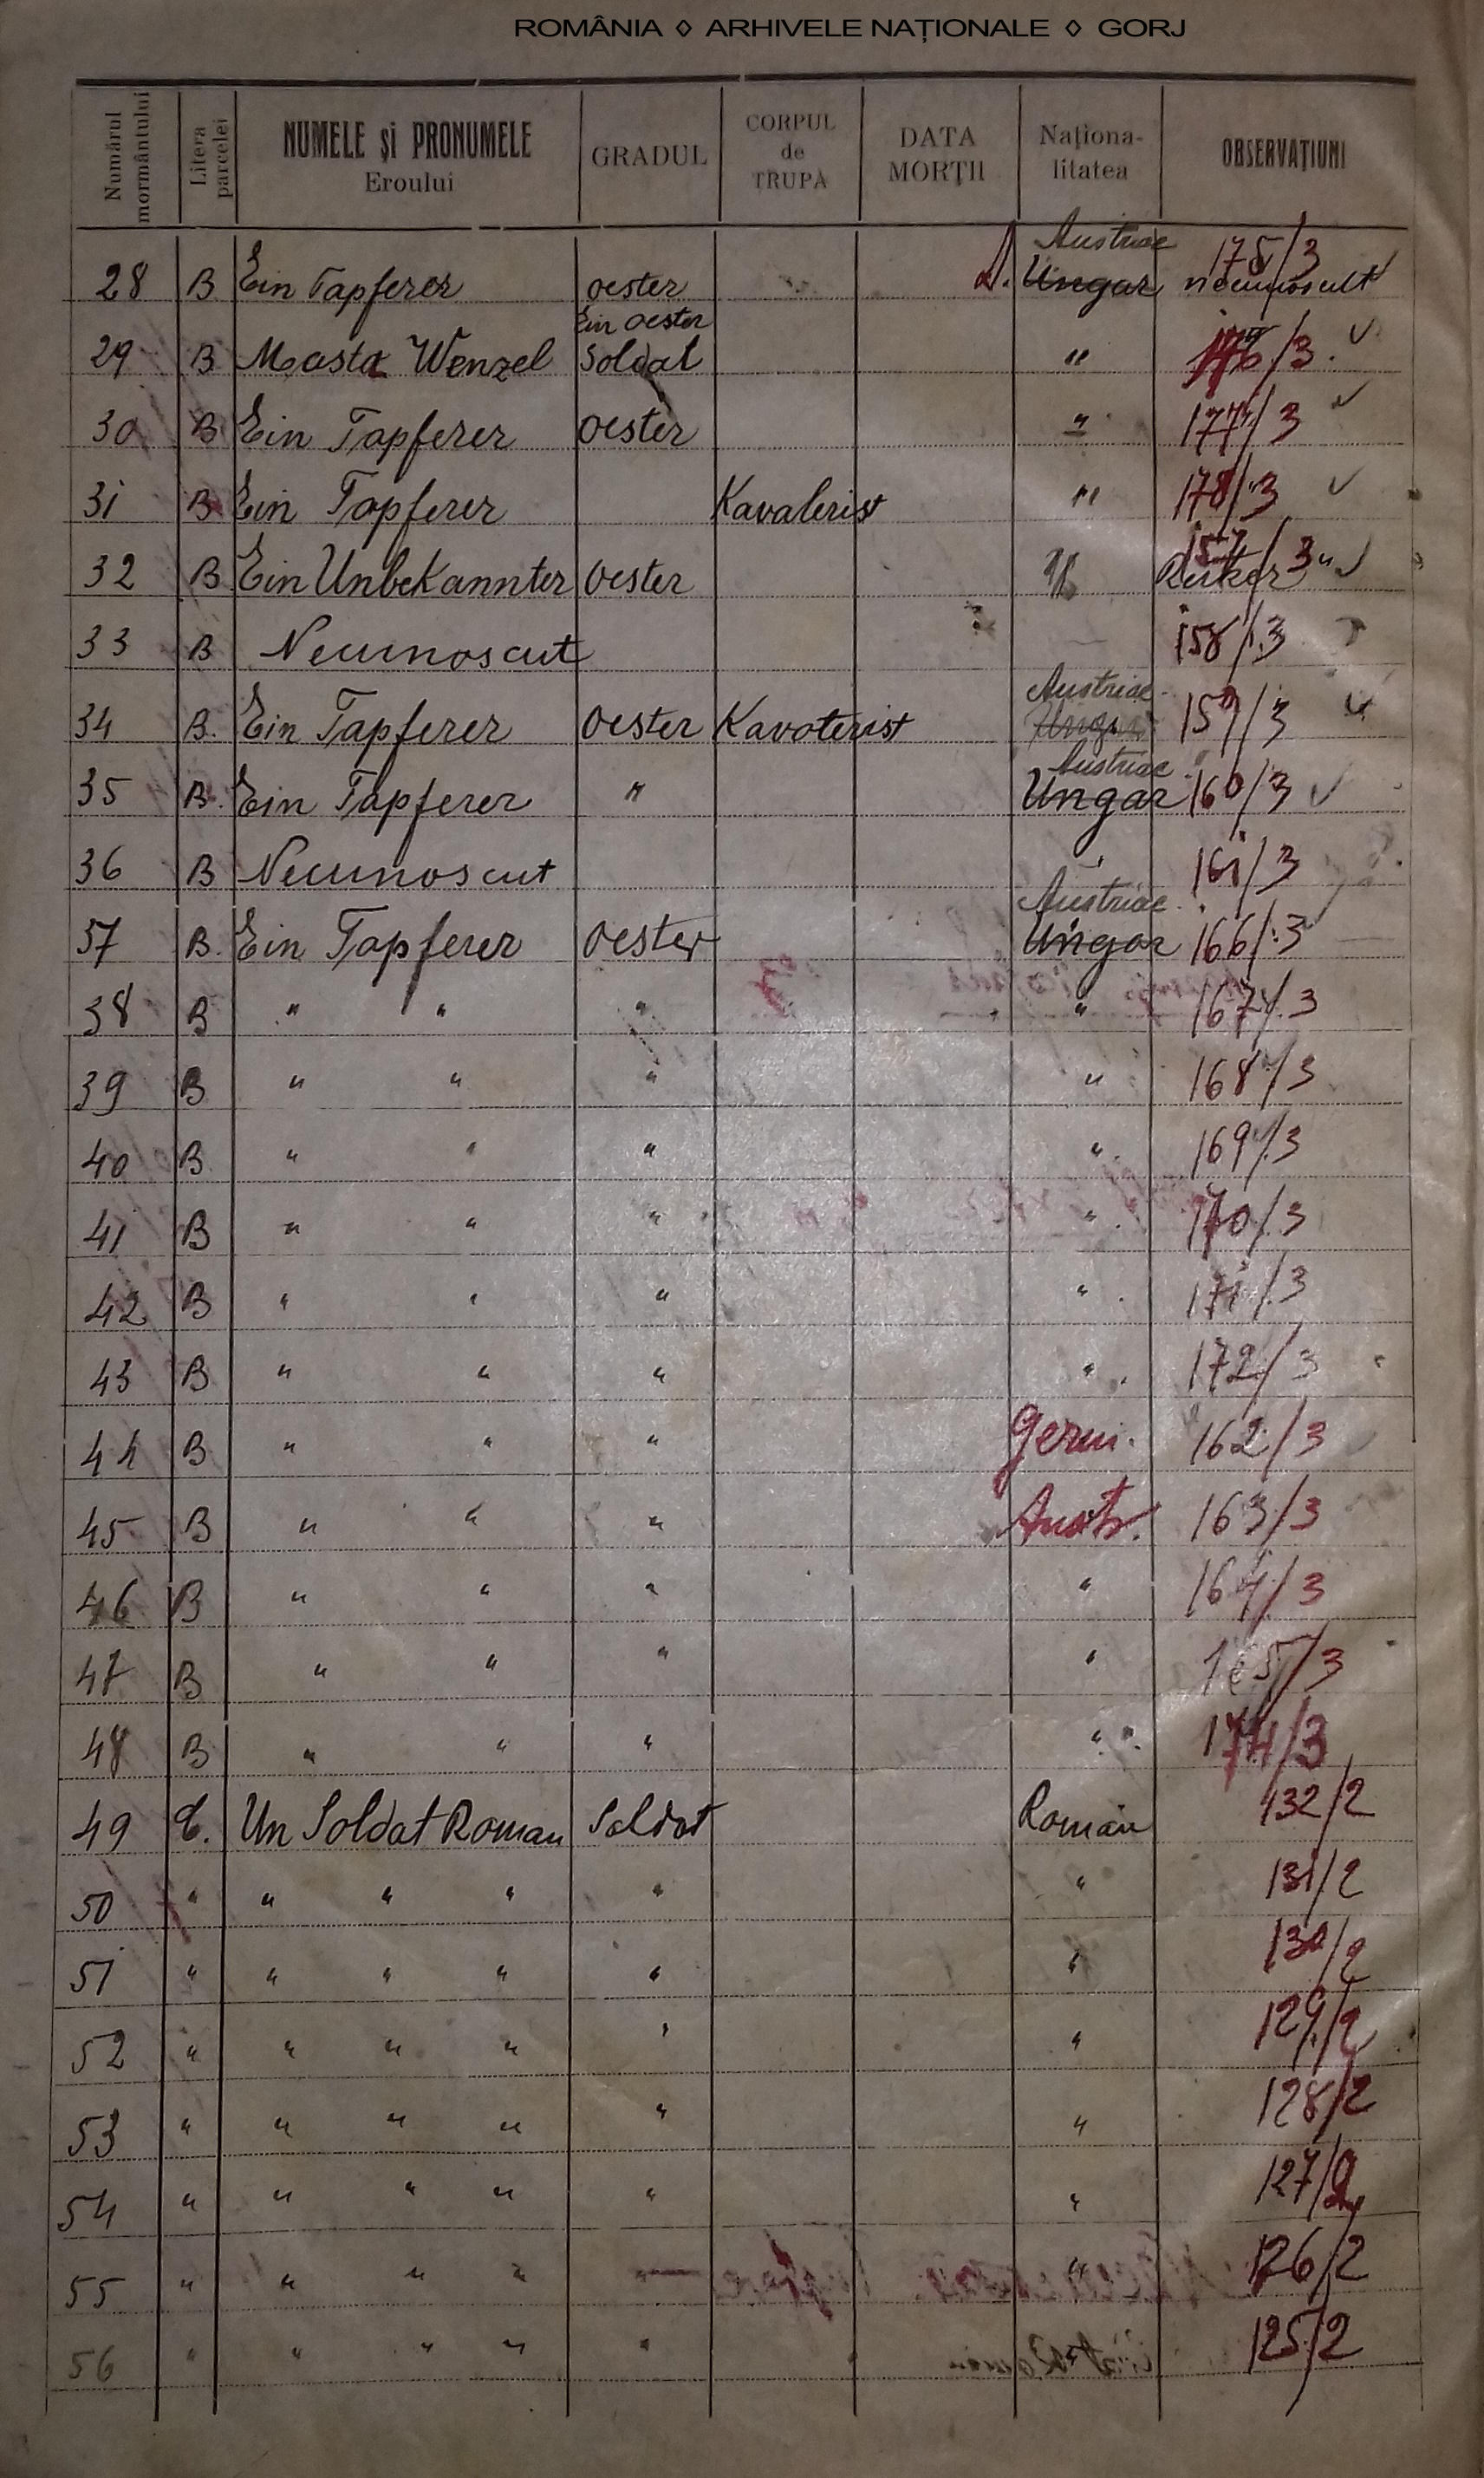 ROMÂNIA ◊ ARHIVELE NAȚIONALE ◊ GORJ
Numărul mormântului Litera parcelei NUMELE și PRONUMELE Eroului GRADUL CORPUL de TRUPĂ DATA MORȚII Naționalitatea OBSERVAȚIUNI
Austriac 175/3
28 B Ein Tapferer oester Ungar
Ein oester
29 B Masta Wenzel Soldat " 176/3
30 B Ein Tapferer oester " 177/3
31 B Ein Tapferer Kavalerist " 178/3
157/3
32 B Ein Unbekannter oester "
33 B Necunoscut 158/3
Austriac
34 B. Ein Tapferer oester Kavalerist Ungar 159/3
Austriac
35 B. Ein Tapferer " Ungar 160/3
36 B Necunoscut 161/3
Austriac
37 B. Ein Tapferer oester Ungar 166/3
38 B " " " " 167/3
39 B " " " " 168/3
40 B " " " " 169/3
41 B " " " " 170/3
42 B " " " " 171/3
43 B " " " " 172/3
44 B " " " Germ. 162/3
45 B " " " Austr. 163/3
46 B " " " " 164/3
47 B " " " " 165/3
48 B " " " " 174/3
49 C. Un Soldat Roman Soldat Român 132/2
50 " " " " " " 131/2
51 " " " " " " 130/2
52 " " " " " " 129/2
53 " " " " " " 128/2
54 " " " " " " 127/2
55 " " " " " " 126/2
56 " " " " " 125/2